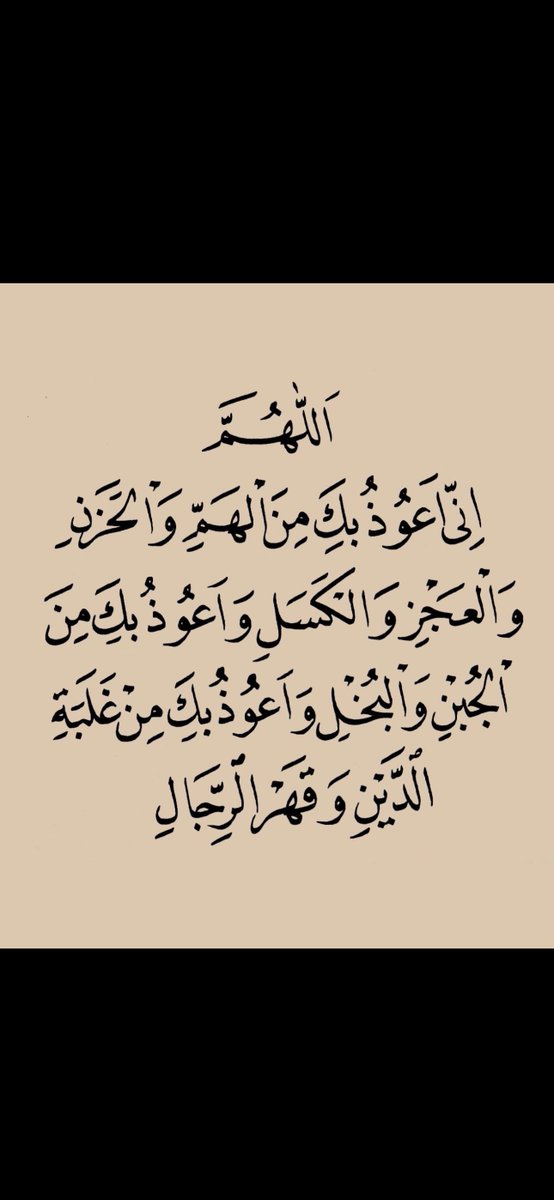 اَللّٰهُمَّ
اِنِّىٓ اَعُوْذُ بِكَ مِنَ الْهَمِّ وَالْحَزَنِ
وَالْعَجْزِ وَالْكَسَلِ وَاَعُوْذُ بِكَ مِنَ
الْجُبْنِ وَالْبُخْلِ وَاَعُوْذُ بِكَ مِنْ غَلَبَةِ
الدَّيْنِ وَقَهْرِ الرِّجَالِ